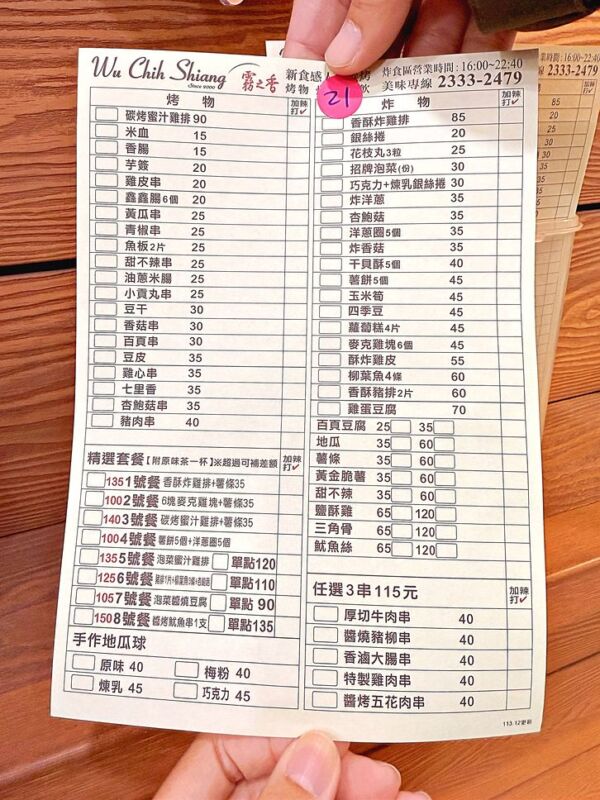 Wu Chih Shiang
Since 2000
霧之香
新食感
烤物
炸食區營業時間:16:00~22:40
美味專線 2333-2479
21
烤 物
加辣打✓
碳烤蜜汁雞排 90
米血 15
香腸 15
芋簽 20
雞皮串 20
鑫鑫腸6個 20
黃瓜串 25
青椒串 25
魚板2片 25
甜不辣串 25
油蔥米腸 25
小貢丸串 25
豆干 30
香菇串 30
百頁串 30
豆皮 35
雞心串 35
七里香 35
杏鮑菇串 35
豬肉串 40
精選套餐【附原味茶一杯】※超過可補差額
加辣打✓
135 1號餐 香酥炸雞排+薯條35
100 2號餐 6塊麥克雞塊+薯條35
140 3號餐 碳烤蜜汁雞排+薯條35
100 4號餐 薯餅5個+洋蔥圈5個
135 5號餐 泡菜蜜汁雞排 單點120
125 6號餐 單點110
105 7號餐 泡菜醬燒豆腐 單點 90
150 8號餐 醬烤魷魚串1支 單點135
手作地瓜球
原味 40 梅粉 40
煉乳 45 巧克力 45
炸 物
加辣打✓
香酥炸雞排 85
銀絲捲 20
花枝丸3粒 25
招牌泡菜(份) 30
巧克力+煉乳銀絲捲 30
炸洋蔥 35
杏鮑菇 35
洋蔥圈5個 35
炸香菇 35
干貝酥5個 40
薯餅5個 45
玉米筍 45
四季豆 45
蘿蔔糕4片 45
麥克雞塊6個 45
酥炸雞皮 55
柳葉魚4條 60
香酥豬排2片 60
雞蛋豆腐 70
百頁豆腐 25 35
地瓜 35 60
薯條 35 60
黃金脆薯 35 60
甜不辣 35 60
鹽酥雞 65 120
三角骨 65 120
魷魚絲 65 120
任選3串115元
加辣打✓
厚切牛肉串 40
醬燒豬柳串 40
香滷大腸串 40
特製雞肉串 40
醬烤五花肉串 40
113.12更新